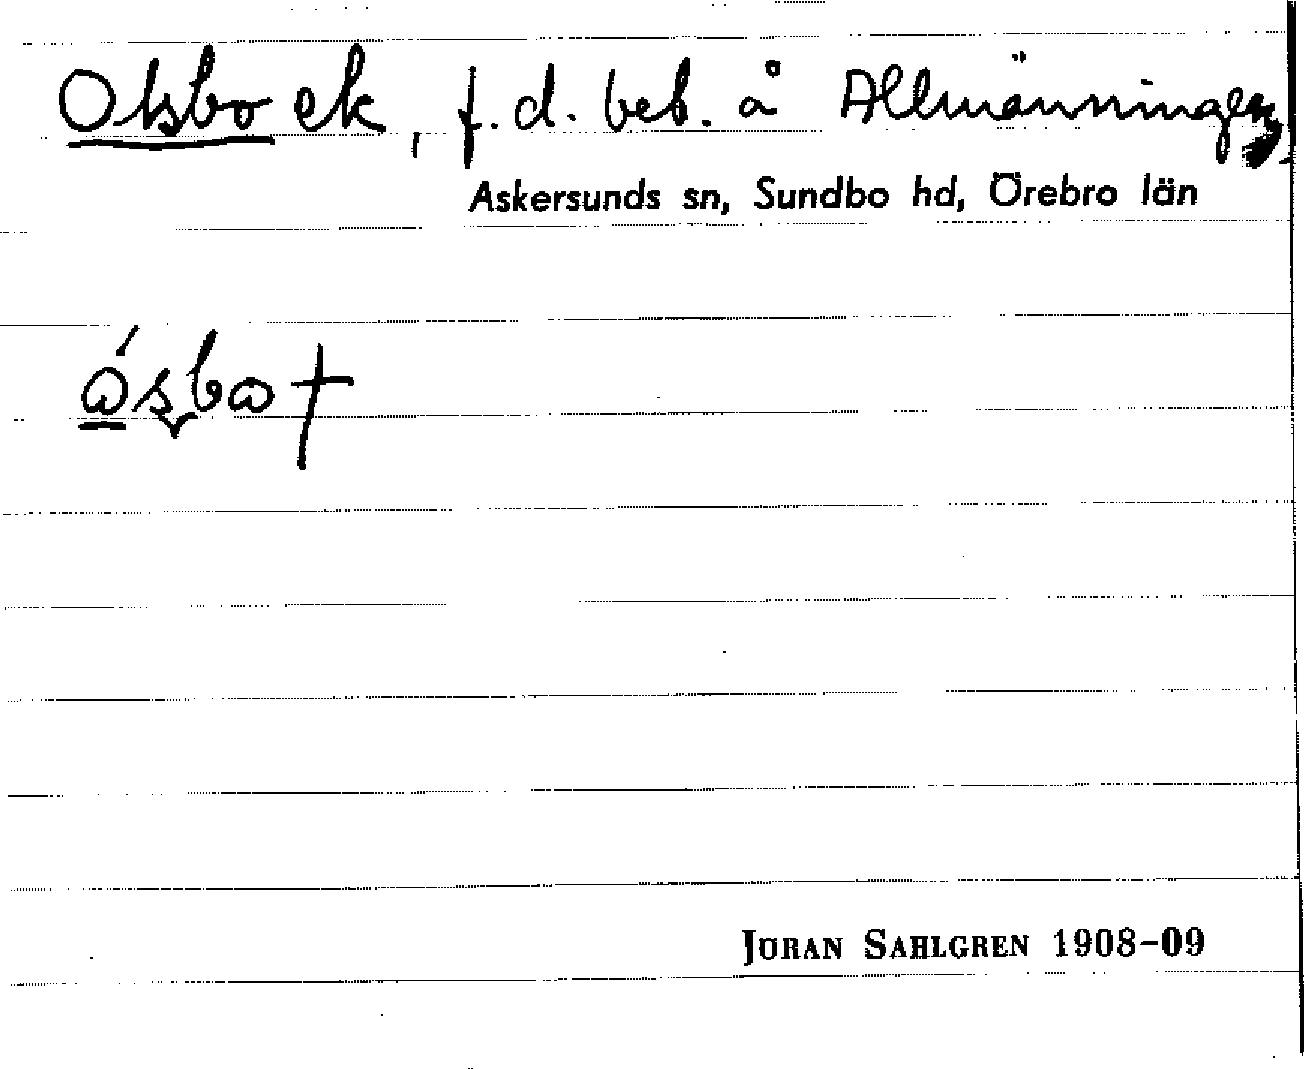 Otsbo ek, f.d. beb. å Allmänningen,
Askersunds sn, Sundbo hd, Örebro län
JÖRAN SAHLGREN 1908-09